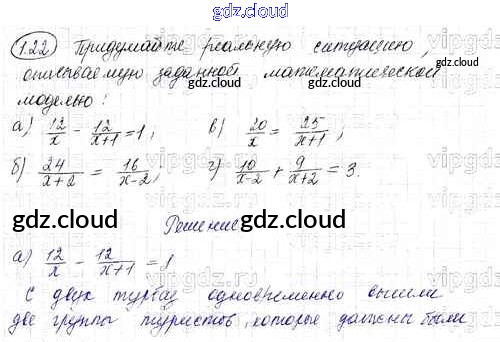 gdz.cloud
1.22 Придумайте реальную ситуацию,
gdz.cloud gdz.cloud
описываемую заданной математической
моделью:
а) 12/x - 12/(x+1) = 1; в) 20/x = 25/(x+1);
б) 24/(x+2) = 16/(x-2); г) 10/(x-2) + 9/(x+2) = 3.
gdz.cloud gdz.cloud
Решение
а) 12/x - 12/(x+1) = 1
С двух турбаз одновременно вышли
две группы туристов, которые должны были
gdz.cloud